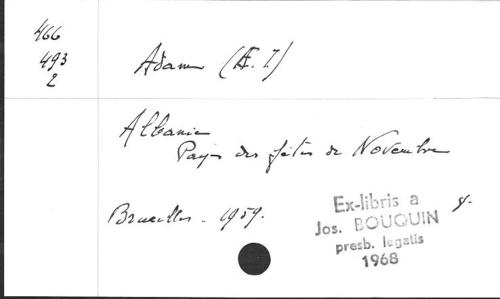 466
493
2
Adam (Æ. I)
Albanie
Pays des fêtes de Novembre
Bruxelles - 1959.
Ex-libris a
Jos. BOUQUIN
presb. legatis
1968